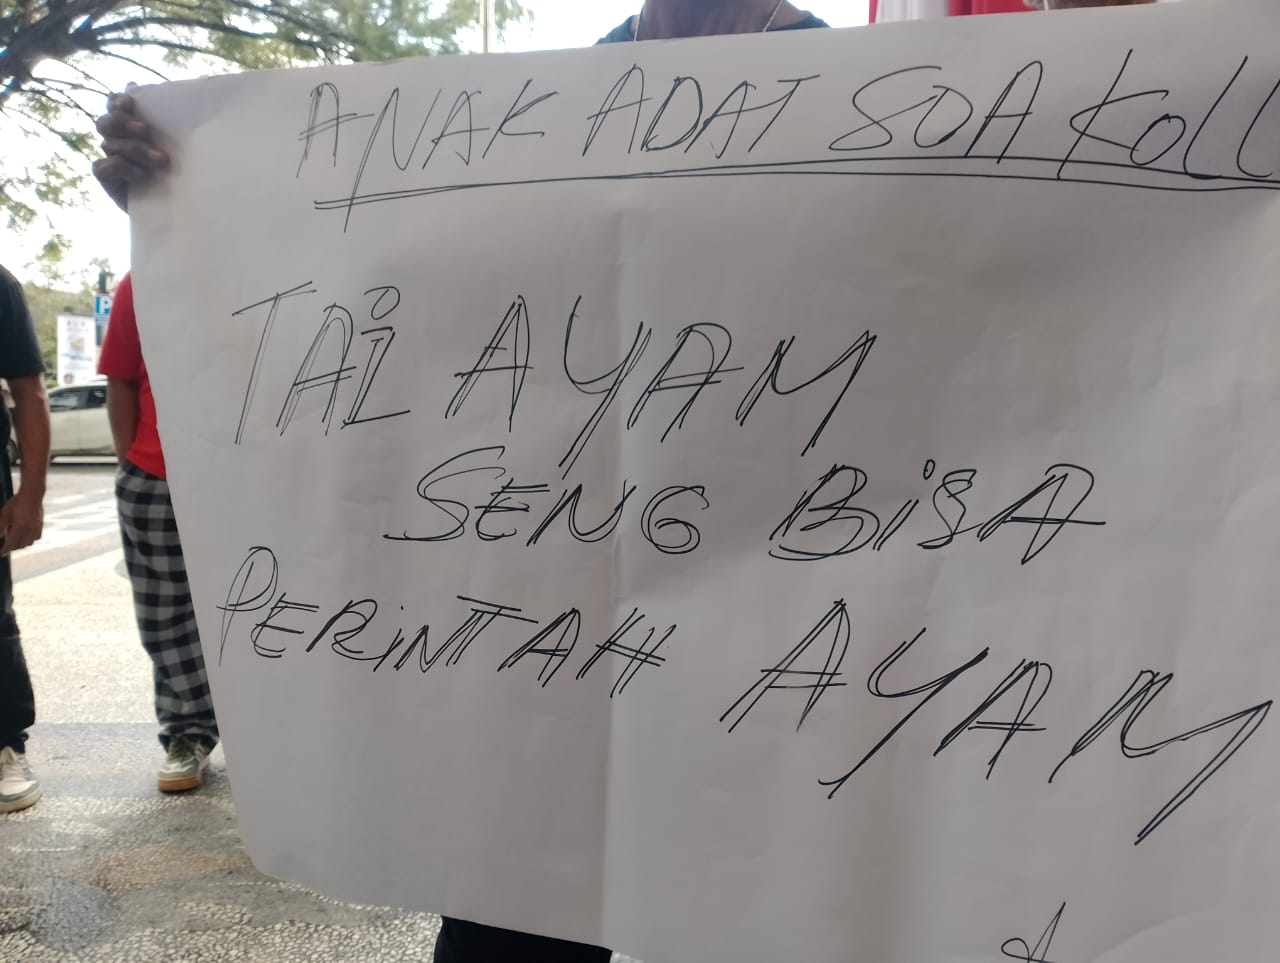 ANAK ADAT SOA KOLL
TAI AYAM
SENG BiSA
PERiNTAH AYAM
P